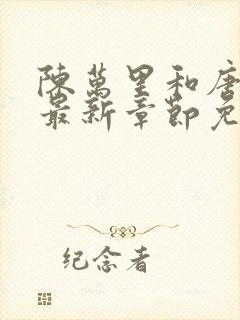 陳萬里和唐
最新章節免
纪念者